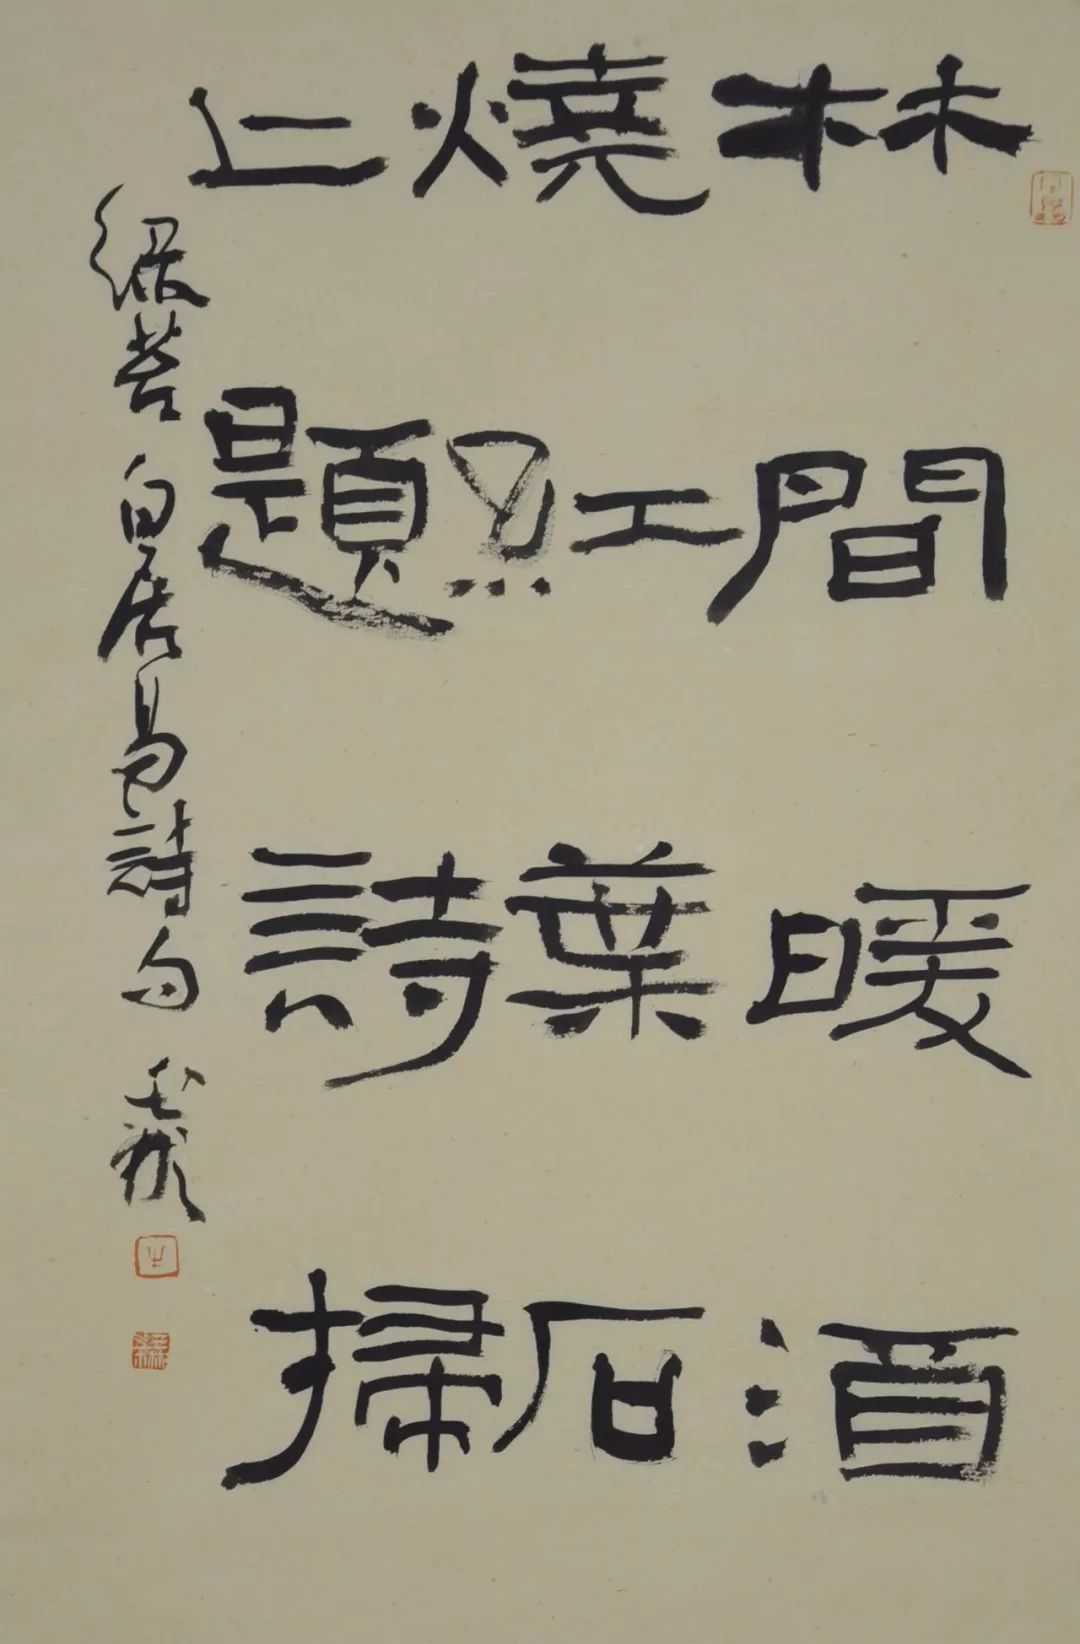 林間暖酒
燒紅葉石
上題詩掃
綠苔 白居易詩句